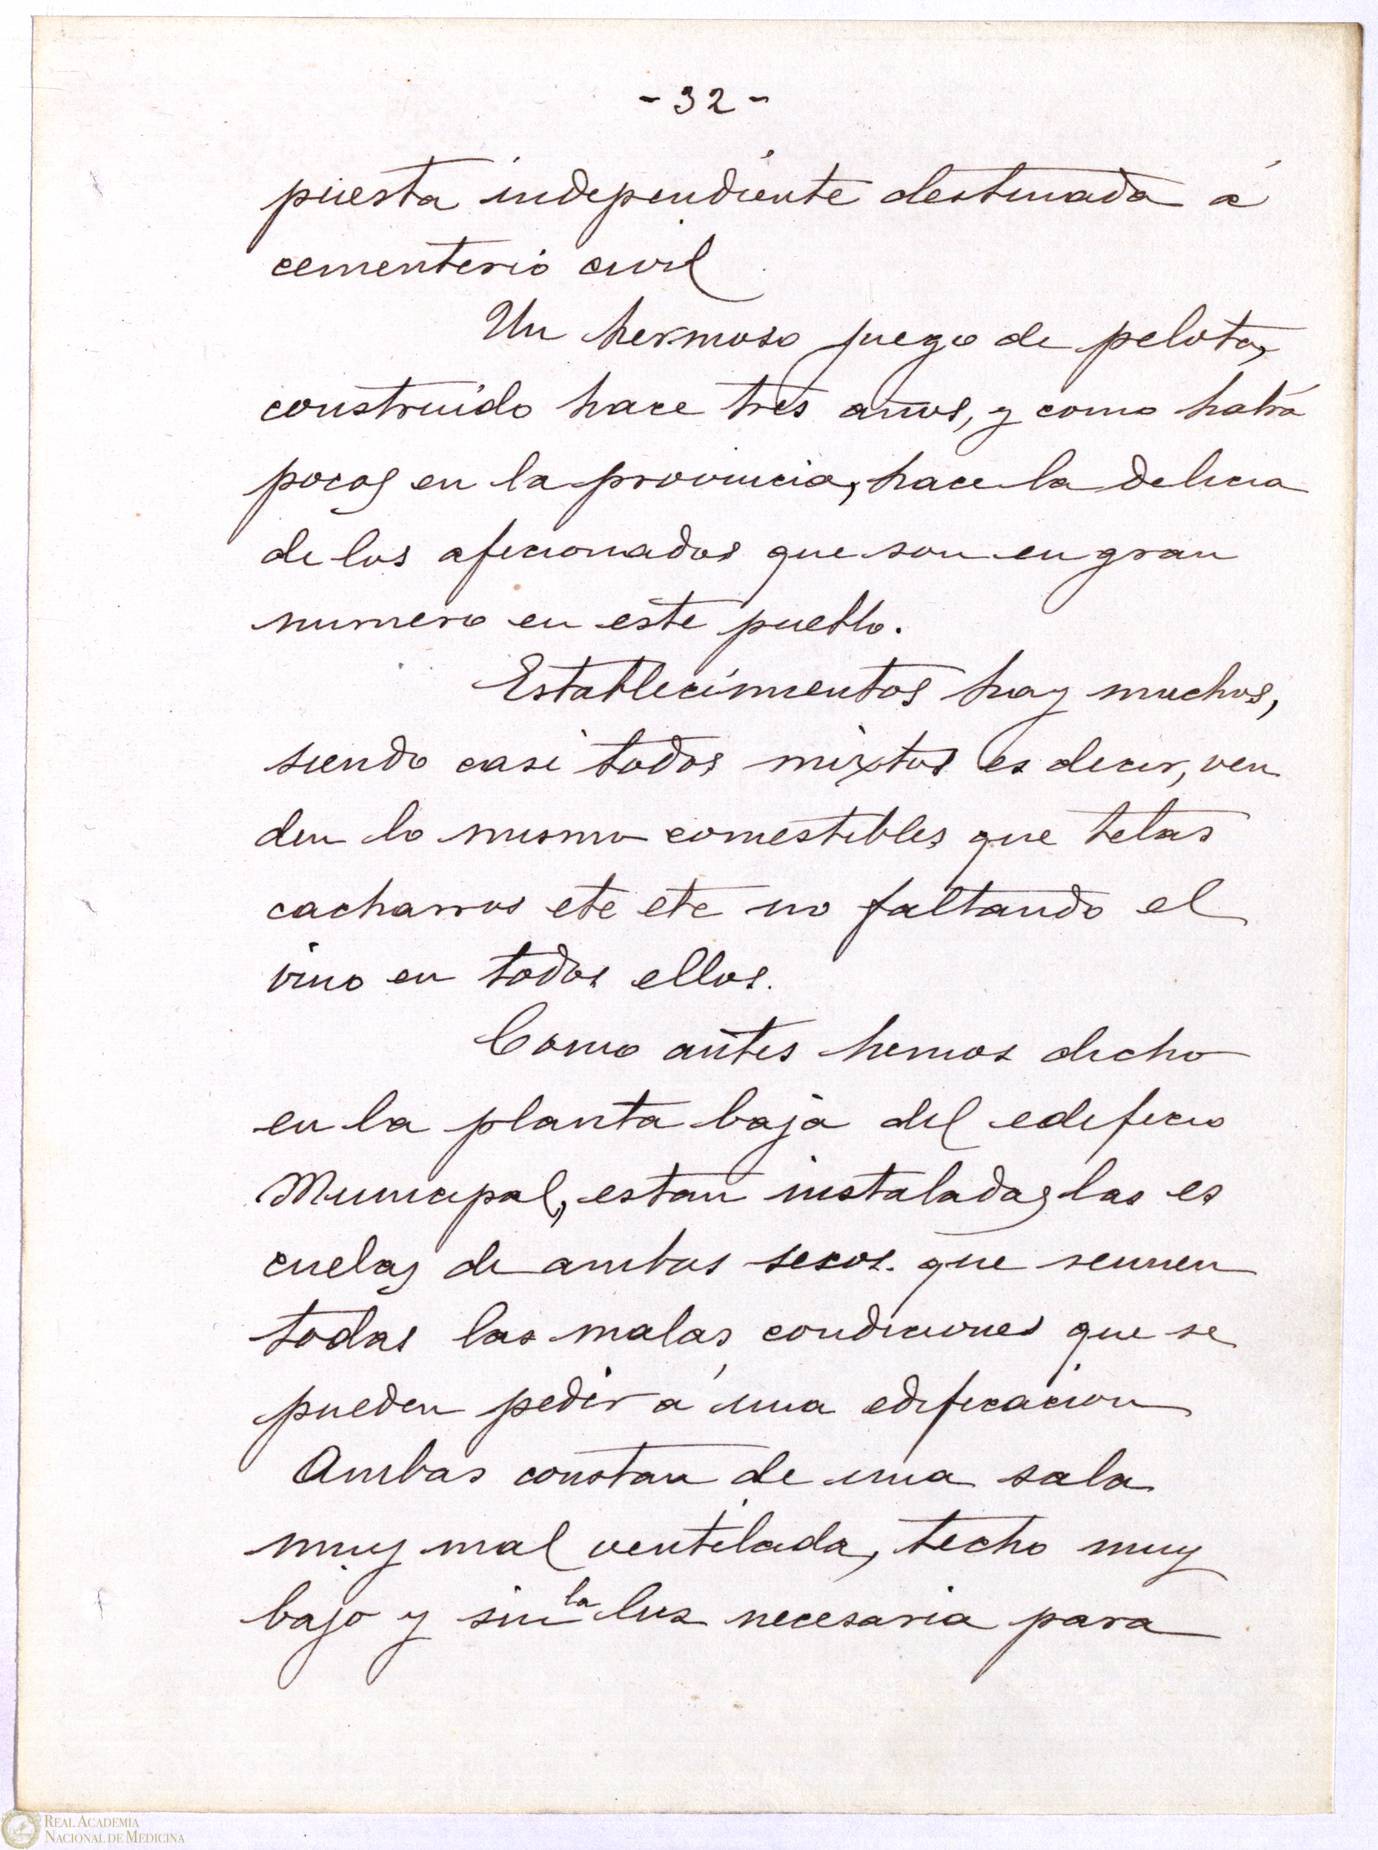 - 32 -
puesta independiente destinada á
cementerio civil
Un hermoso juego de pelota,
construido hace tres años, y como habrá
pocos en la provincia, hace la delicia
de los aficionados que son en gran
numero en este pueblo.
Establecimientos hay muchos,
siendo casi todos mixtos es decir, ven
den lo mismo comestibles que telas
cacharros etc etc no faltando el
vino en todos ellos.
Como antes hemos dicho
en la planta baja del edificio
Municipal, estan instaladas las es
cuelas de ambos sexos. que reunen
todas las malas condiciones que se
pueden pedir á una edificacion
Ambas constan de una sala
muy mal ventilada, techo muy
bajo y sin la luz necesaria para
REAL ACADEMIA
NACIONAL DE MEDICINA